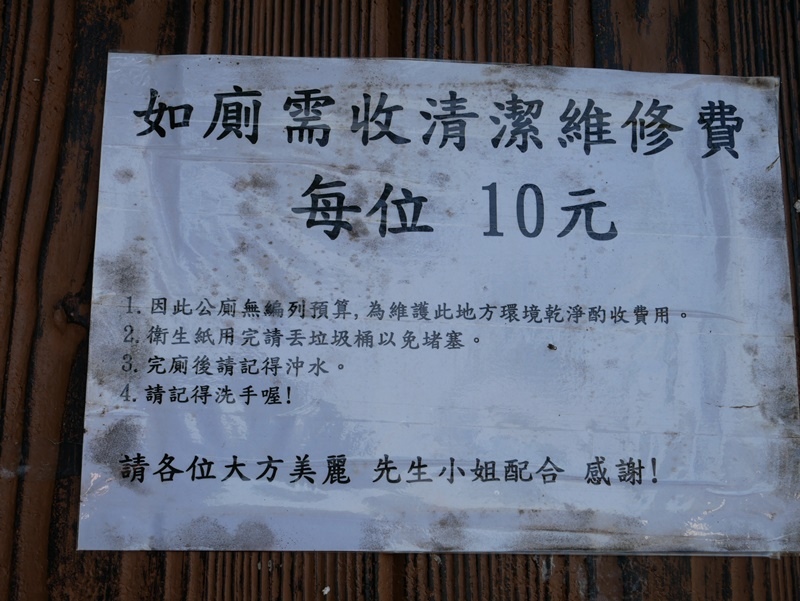 如廁需收清潔維修費
每位 10元
1. 因此公廁無編列預算,為維護此地方環境乾淨酌收費用。
2. 衛生紙用完請丟垃圾桶以免堵塞。
3. 完廁後請記得沖水。
4. 請記得洗手喔!
請各位大方美麗 先生小姐配合 感謝!